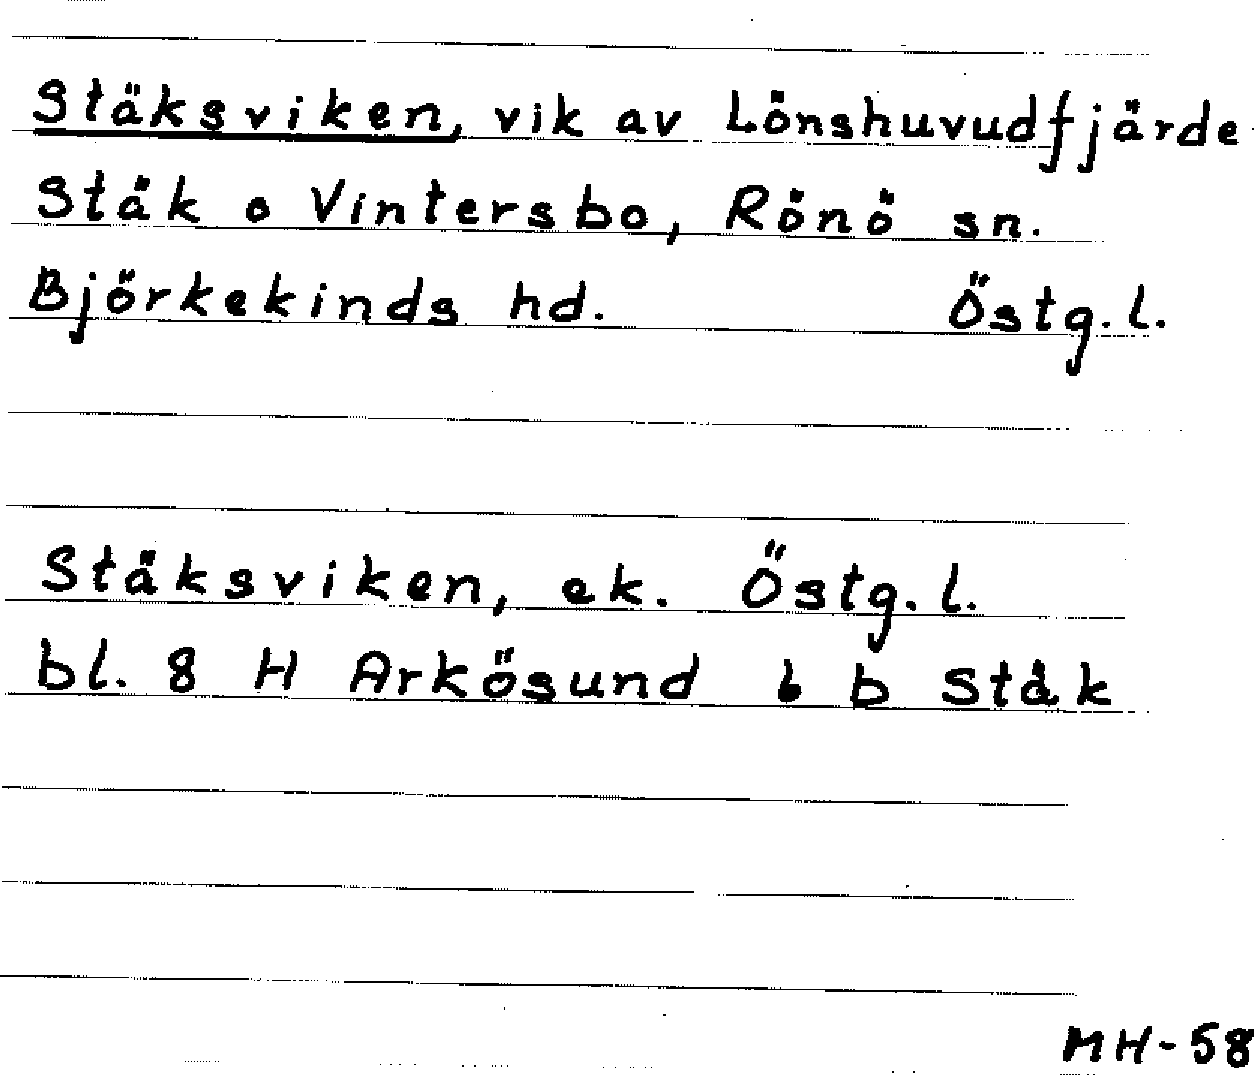 Stäksviken, vik av Lönshuvudfjärde
Stäk o Vintersbo, Rönö sn.
Björkekinds hd. Östg. l.
Stäksviken, ek. Östg. l.
bl. 8 H Arkösund 6 b Stäk
MH-58